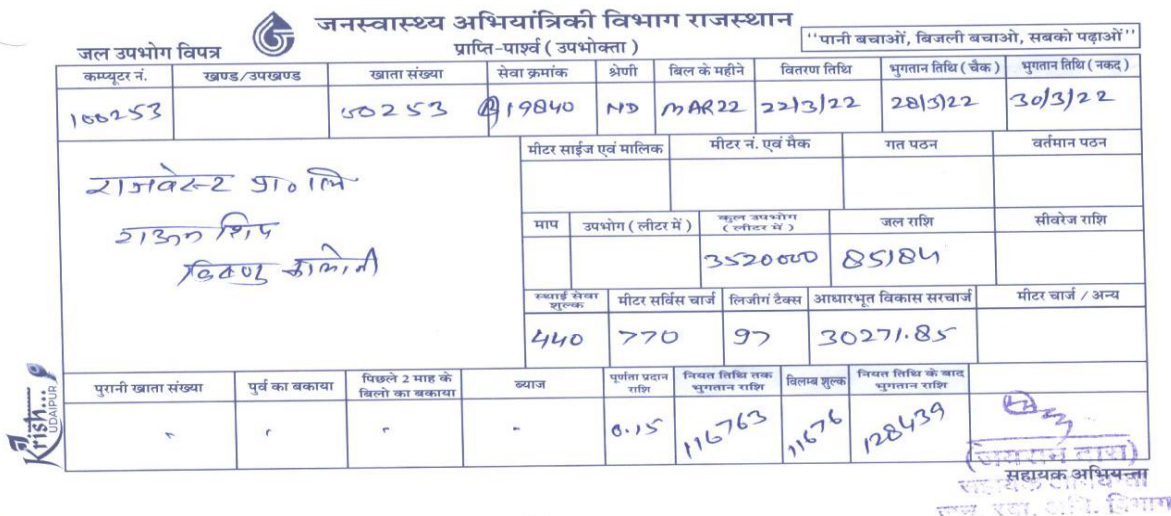 जनस्वास्थ्य अभियांत्रिकी विभाग राजस्थान
जल उपभोग विपत्र
प्राप्ति-पार्श्व ( उपभोक्ता )
''पानी बचाओं, बिजली बचाओ, सबको पढ़ाओं''
कम्प्यूटर नं. खण्ड/उपखण्ड खाता संख्या सेवा क्रमांक श्रेणी बिल के महीने वितरण तिथि भुगतान तिथि ( चैक ) भुगतान तिथि ( नकद )
100253 00253 19840 ND MAR22 22/3/22 28/3/22 30/3/22
मीटर साईज एवं मालिक मीटर नं. एवं मैक गत पठन वर्तमान पठन
राजवेस्ट प्रा० लि
टाऊन शिप
विष्णु कालोनी
माप उपभोग ( लीटर में ) कुल उपभोग ( लीटर में ) जल राशि सीवरेज राशि
3520000 85184
स्थाई सेवा शुल्क मीटर सर्विस चार्ज लिजीगं टैक्स आधारभूत विकास सरचार्ज मीटर चार्ज / अन्य
440 770 97 30271.85
पुरानी खाता संख्या पुर्व का बकाया पिछले 2 माह के बिलो का बकाया ब्याज पूर्णता प्रदान राशि नियत तिथि तक भुगतान राशि विलम्ब शुल्क नियत तिथि के बाद भुगतान राशि
0.15 116763 11676 128439
सहायक अभियन्ता
श्री Krish...
UDAIPUR